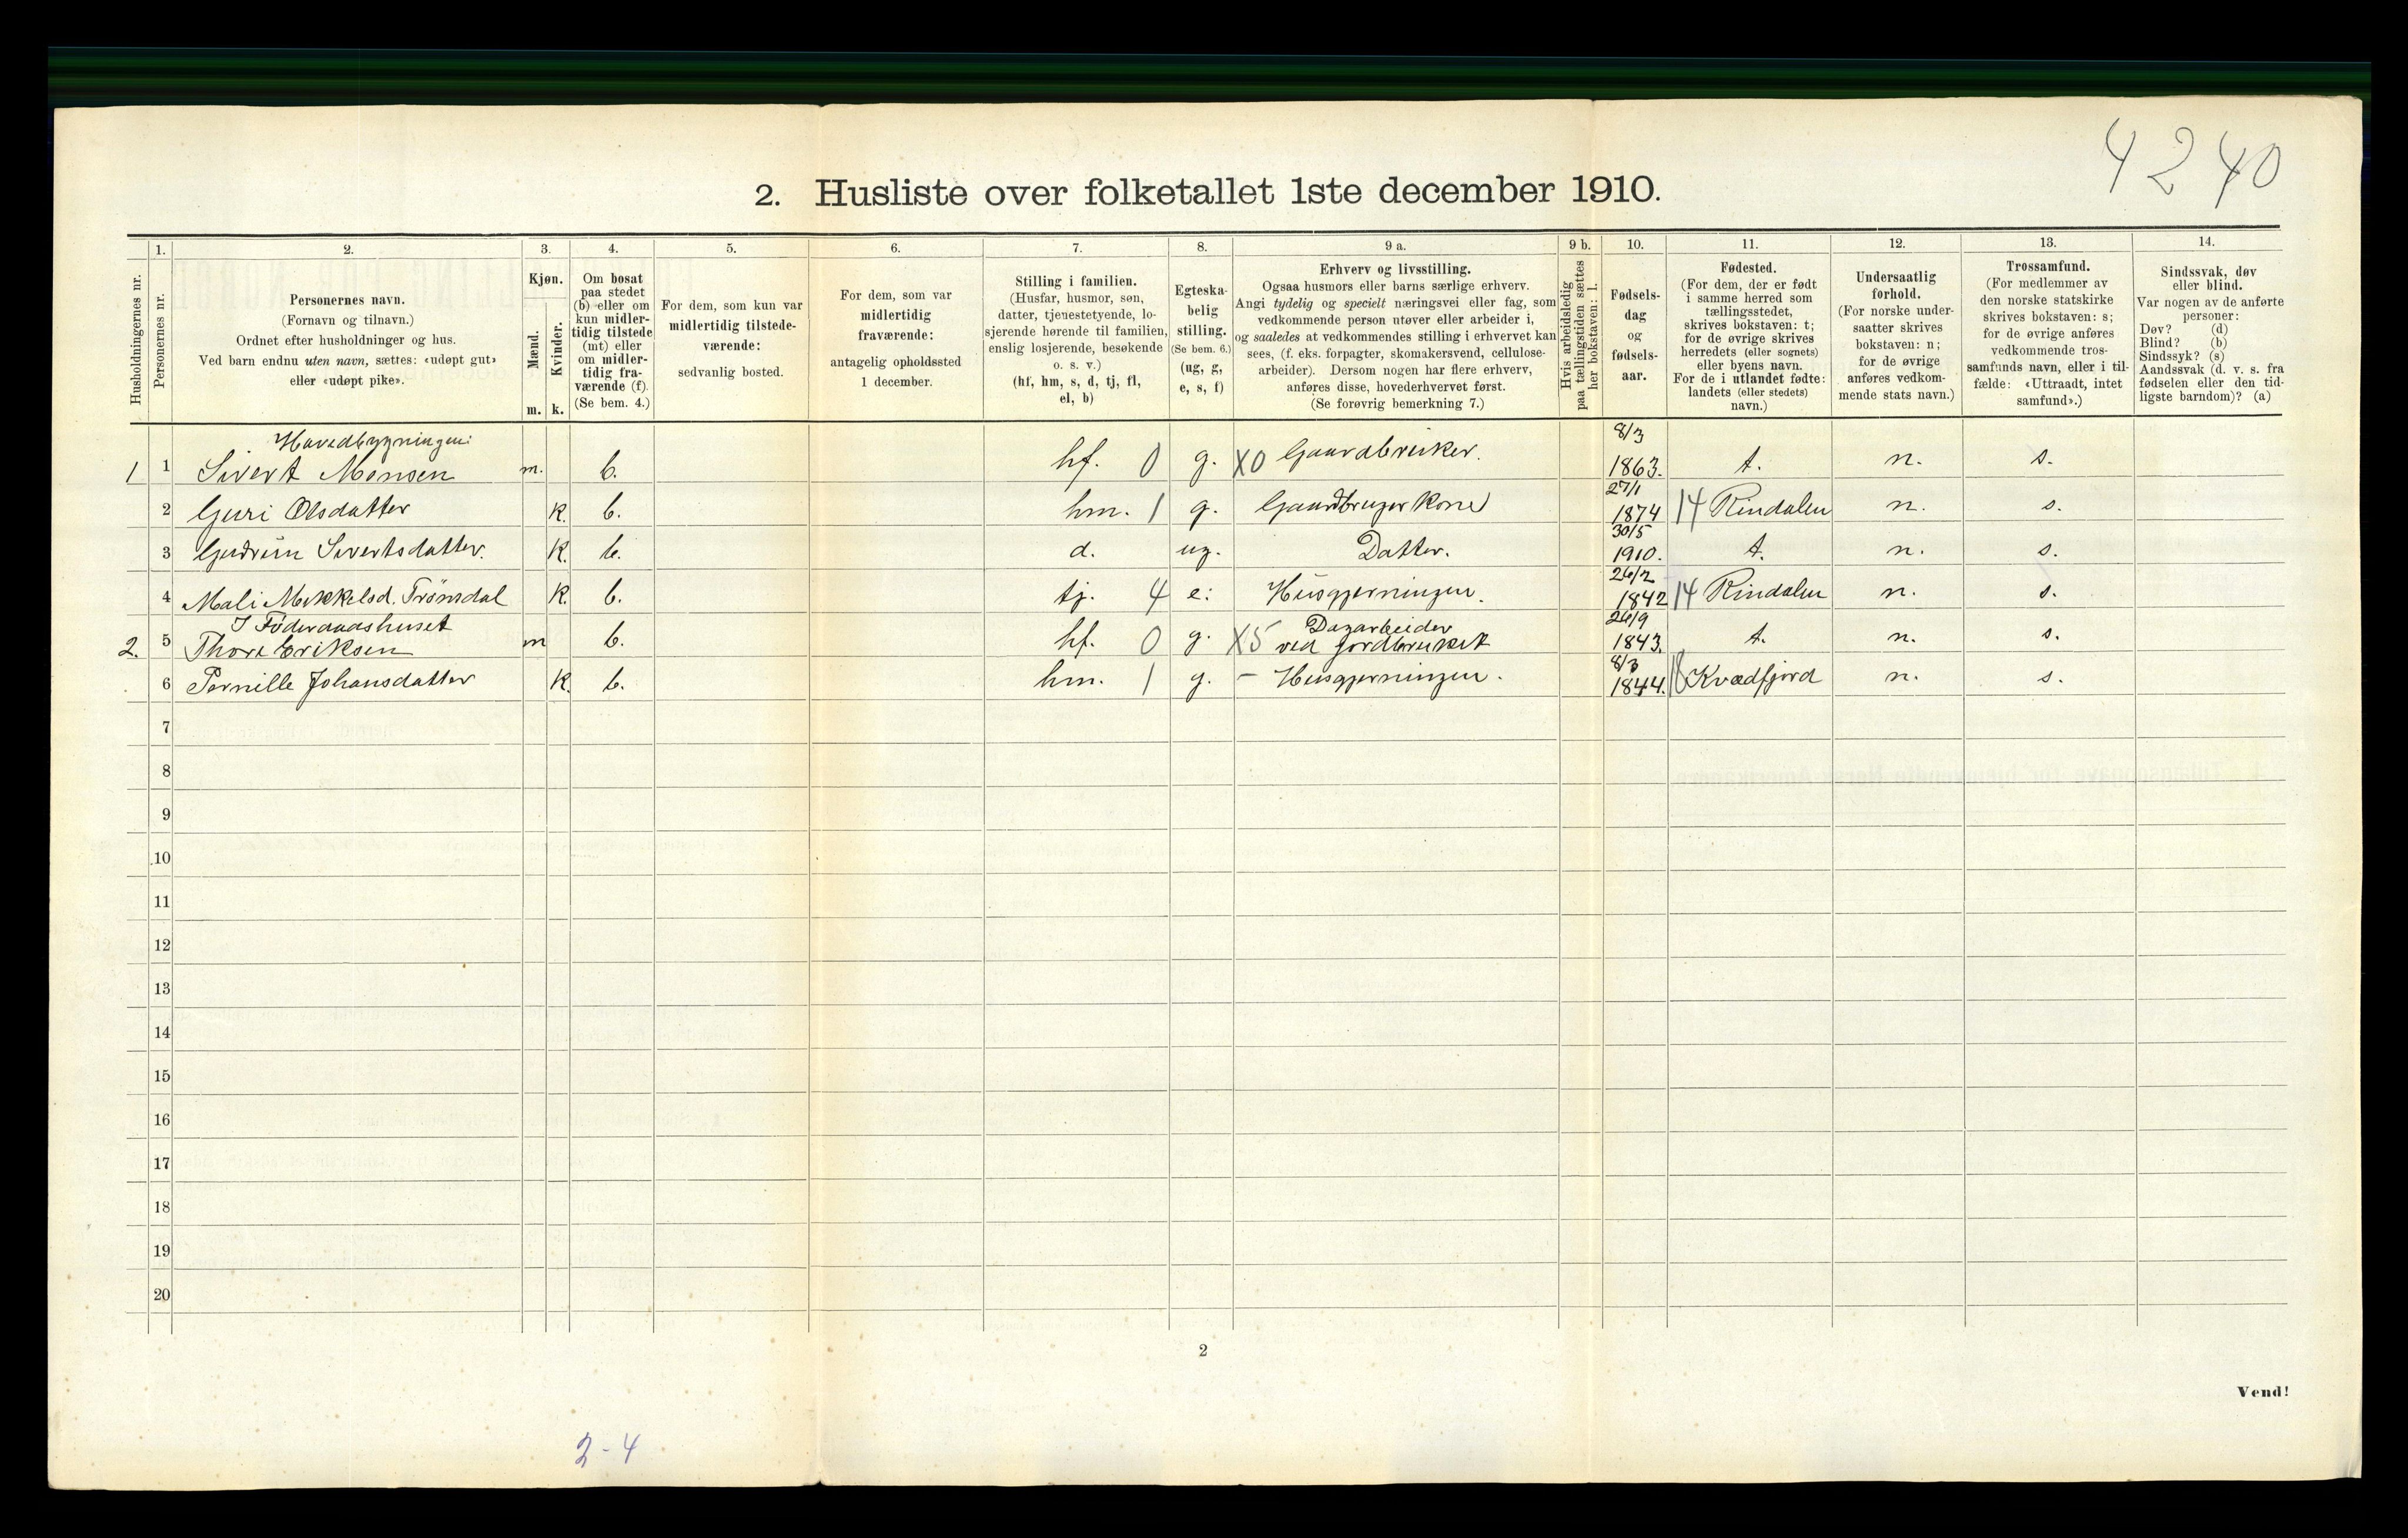 4240
2. Husliste over folketallet 1ste december 1910.
Husholdningernes nr.
1.
Personernes nr.
2.
Personernes navn.
(Fornavn og tilnavn.)
Ordnet efter husholdninger og hus.
Ved barn endnu uten navn, sættes: «udøpt gut»
eller «udøpt pike».
3.
Kjøn.
Mænd.
Kvinder.
m. k.
4.
Om bosat
paa stedet
(b) eller om
kun midler-
tidig tilstede
(mt) eller
om midler-
tidig fra-
værende (f).
(Se bem. 4.)
5.
For dem, som kun var
midlertidig tilstede-
værende:
sedvanlig bosted.
6.
For dem, som var
midlertidig
fraværende:
antagelig opholdssted
1 december.
7.
Stilling i familien.
(Husfar, husmor, søn,
datter, tjenestetyende, lo-
sjerende hørende til familien,
enslig losjerende, besøkende
o. s. v.)
(hf, hm, s, d, tj, fl,
el, b)
8.
Egteska-
belig
stilling.
(Se bem. 6.)
(ug, g,
e, s, f)
9 a.
Erhverv og livsstilling.
Ogsaa husmors eller barns særlige erhverv.
Angi tydelig og specielt næringsvei eller fag, som
vedkommende person utøver eller arbeider i,
og saaledes at vedkommendes stilling i erhvervet kan
sees, (f. eks. forpagter, skomakersvend, cellulose-
arbeider). Dersom nogen har flere erhverv,
anføres disse, hovederhvervet først.
(Se forøvrig bemerkning 7.)
9 b.
Hvis arbeidsledig
paa tællingstiden sættes
her bokstaven: l.
10.
Fødsels-
dag
og
fødsels-
aar.
11.
Fødested.
(For dem, der er født
i samme herred som
tællingsstedet,
skrives bokstaven: t;
for de øvrige skrives
herredets (eller sognets)
eller byens navn.
For de i utlandet fødte:
landets (eller stedets)
navn.)
12.
Undersaatlig
forhold.
(For norske under-
saatter skrives
bokstaven: n;
for de øvrige
anføres vedkom-
mende stats navn.)
13.
Trossamfund.
(For medlemmer av
den norske statskirke
skrives bokstaven: s;
for de øvrige anføres
vedkommende tros-
samfunds navn, eller i til-
fælde: «Uttraadt, intet
samfund».)
14.
Sindssvak, døv
eller blind.
Var nogen av de anførte
personer:
Døv? (d)
Blind? (b)
Sindssyk? (s)
Aandssvak (d. v. s. fra
fødselen eller den tid-
ligste barndom)? (a)
Hovedbygningen:
1 1 Sivert Monsen m. b. hf. 0 g. X0 Gaardbruker. 8/3 1863. t. n. s.
2 Guri Olsdatter k. b. hm. 1 g. Gaardbruger kone 27/1 1874 14 Rindalen n. s.
3 Gudrun Sivertsdatter. k. b. d. ug. Datter. 30/5 1910. t. n. s.
4 Mali Mikkelsd. Trønsdal k. b. tj. 4 e: Husgjerningen. 26/2 1842 14 Rindalen n. s.
I Føderaadshuset
2. 5 Thore Eriksen m b. hf. 0 g. X5 Dagarbeider ved jordbruket 26/9 1843. t. n. s.
6 Pernille Johansdatter k. b. hm. 1 g. - Husgjerningen. 8/3 1844. 18 Kvædfjord n. s.
7
8
9
10
11
12
13
14
15
16
17
18
19
20
2
Vend!
2-4